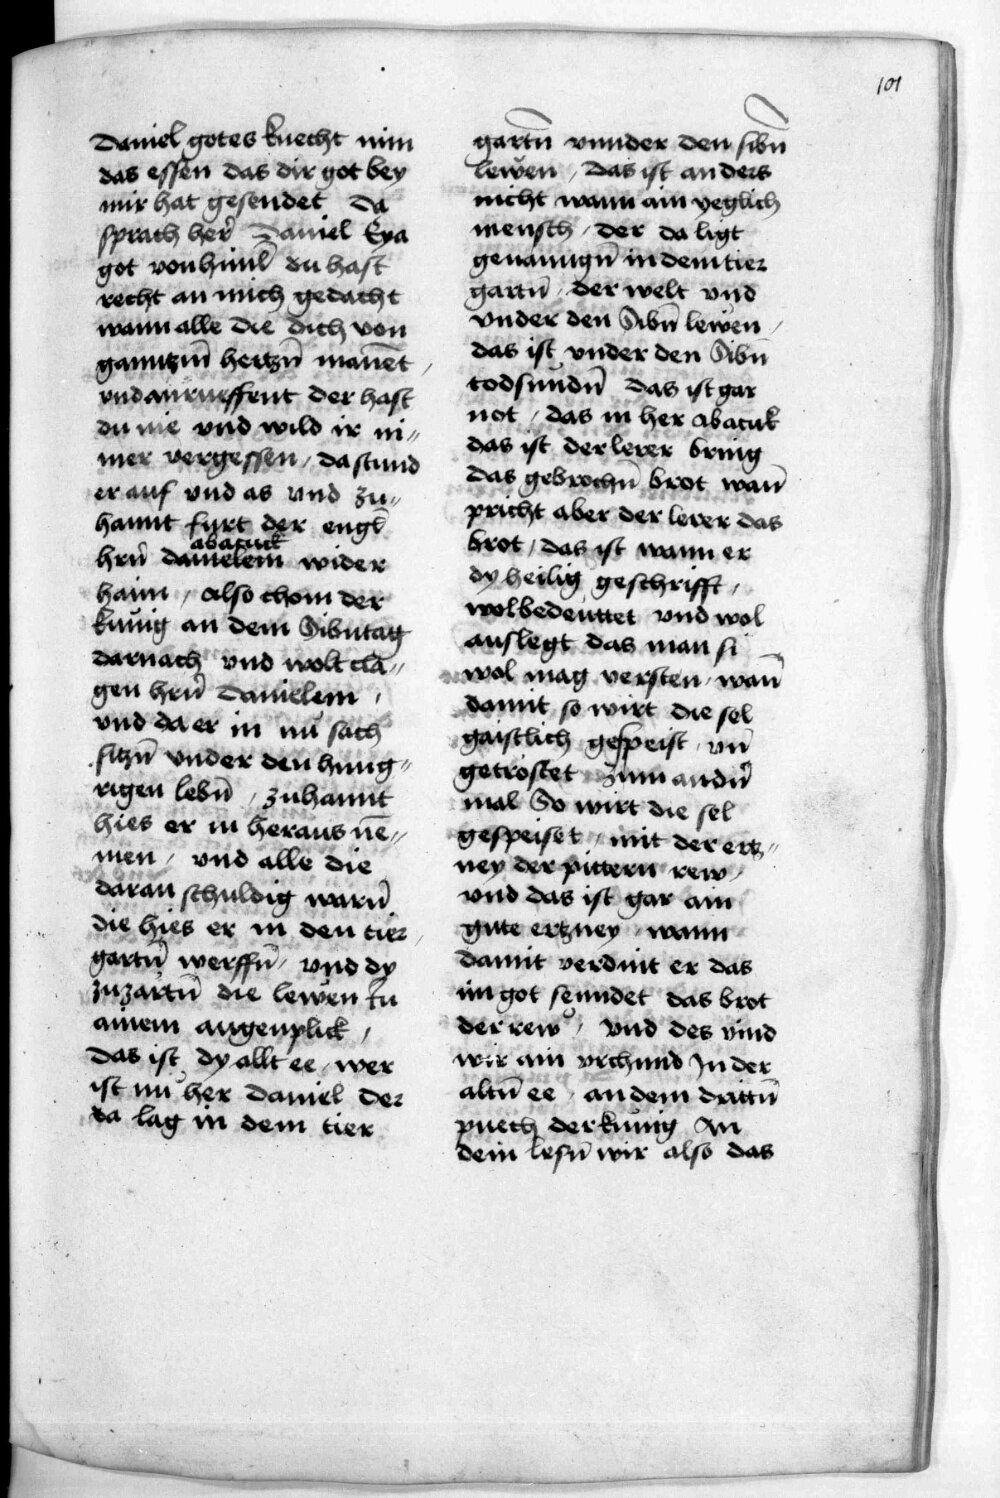 101
Daniel gotes knecht nim
das essen das dir got bey
mir hat gesendet Da
sprach her̃ Daniel Eya
got von himl̃ du hast
recht an mich gedacht
wann alle die dich von
ganntzm̃ hertzñ manēt ,
vnd anrueffent der hast
du nie vnd wild ir ni„
mer vergessen , da stund
er auf vnd as vnd zu„
hannt furt der engl̃
abacuck
hrñ danielem wider
haim , also chom der
kunig an dem Sibntag
darnach vnd wolt cla„
gen hrñ Danielem ,
vnd da er in nu sach
sitzñ vnder den hung„
rigen lebñ , zuhannt
hies er in heraus nē„
men , vnd alle die
daran schuldig warñ
die hies er in den tier ,
gartñ werffñ , vnd dy
zuzartñ die lewen in
ainem augenplick ,
Das ist dy allt ee , wer
ist nu her Daniel der
da lag in dem tier
gartñ vnnder den sibñ
lewen , Das ist anders
nicht wann ain yeglich
mensch , der da ligt
genannigñ in dem tier
gartñ , der welt vnd
vnder den Sibñ lewen ,
das ist vnder den Sibñ
todsundñ das ist gar
not , das in her abacuk
das ist der lerer bring
das gebrochñ brot wañ
pricht aber der lerer das
brot , das ist wann er
dy heilig geschrifft ,
wolbedeuttet vnd wol
auslegt das man si
wol mag versten , wañ
damit so wirt die sel
gaistlich gespeist , vñ
getrostet zum andñ
mal So wirt die sel
gespeiset , mit der ertz„
ney der pittern rew ,
vnd das ist gar ain
gute ertzney , wann
damit verdint er das
im got senndet das brot
der rew , vnd des vind
wir ain vrchund In der
altñ ee , an dem drittñ
puech der kunig An
dem lesñ wir also das